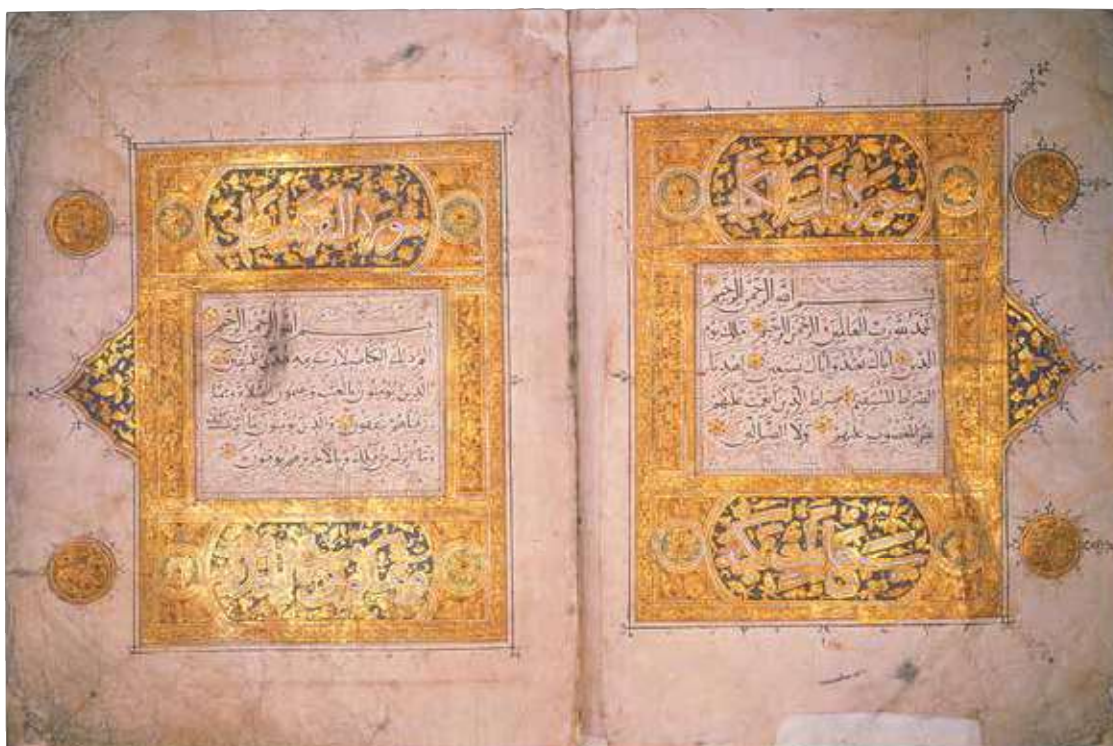 بسم الله الرحمن الرحيم
الحمد لله رب العالمين الرحمن الرحيم مالك يوم
الدين اياك نعبد واياك نستعين اهدنا
الصراط المستقيم صراط الذين انعمت عليهم
غير المغضوب عليهم ولا الضالين
سورة البقرة
بسم الله الرحمن الرحيم
الم ذلك الكتاب لا ريب فيه هدى للمتقين
الذين يؤمنون بالغيب ويقيمون الصلاة ومما
رزقناهم ينفقون والذين يؤمنون بما انزل اليك
وما انزل من قبلك وبالآخرة هم يوقنون